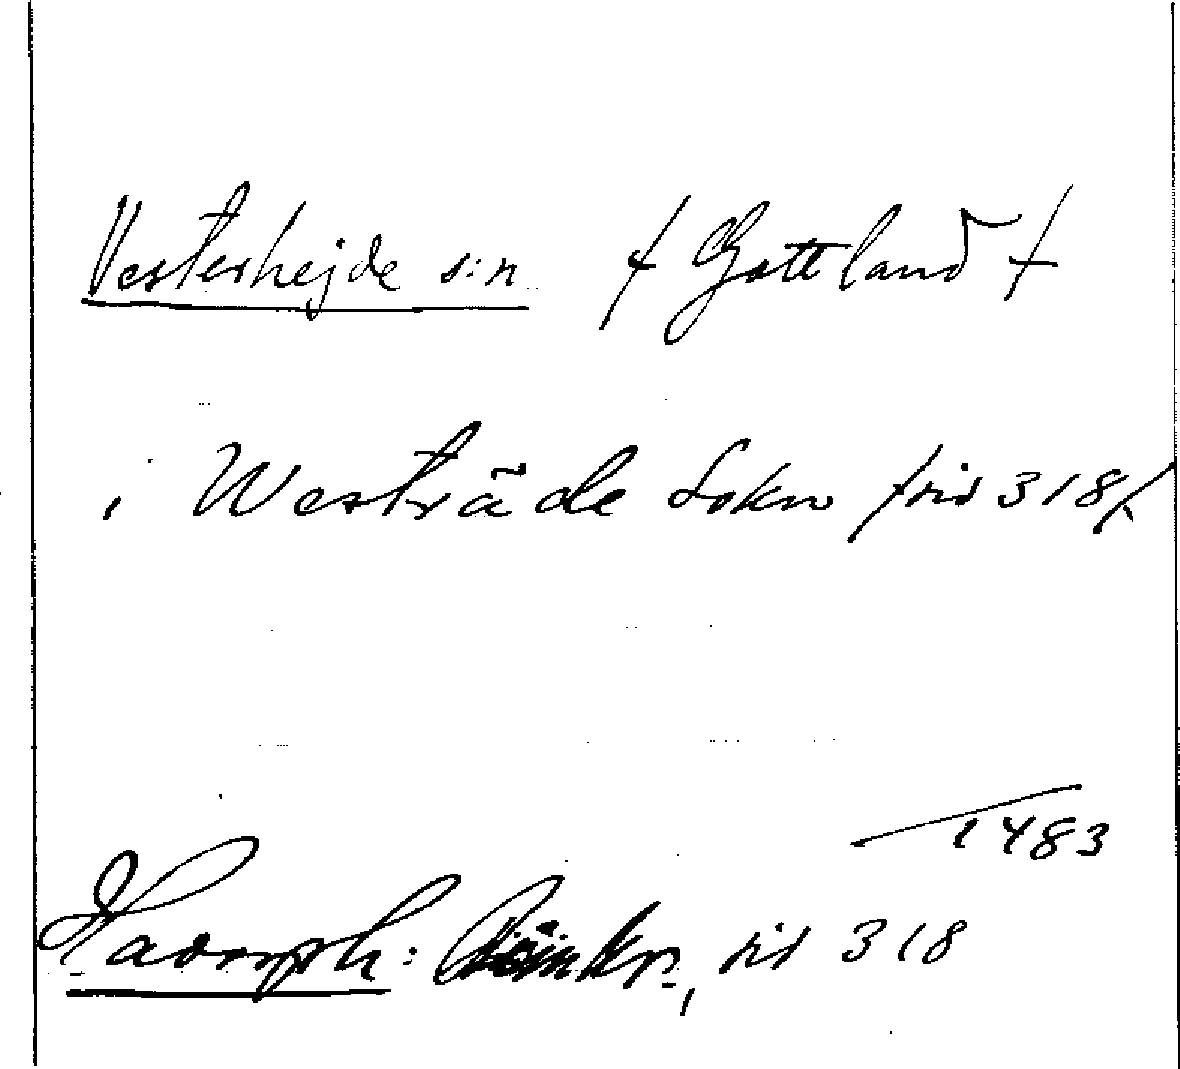 Vesterhejde s:n (Gottland)
i Westräde Sokn (sid 318)
1483
Hadorph: Rimkr., sid 318